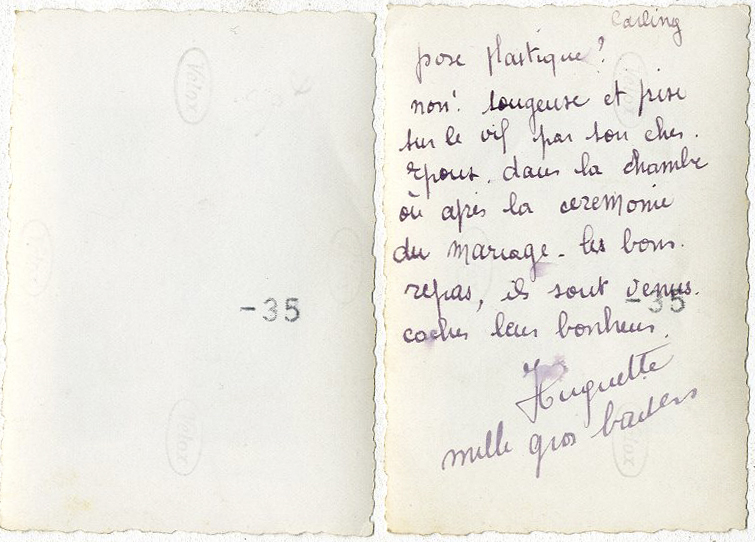 Velox
Velox
Velox
-35
Carling
pose plastique?
non! songeuse et prise
sur le vif par son cher.
époux. dans la chambre
où après la ceremonie
du mariage. les bons.
repas, ils sont venus.
cacher leur bonheur.
Huguette
mille gros baisers
-35
Velox
Velox